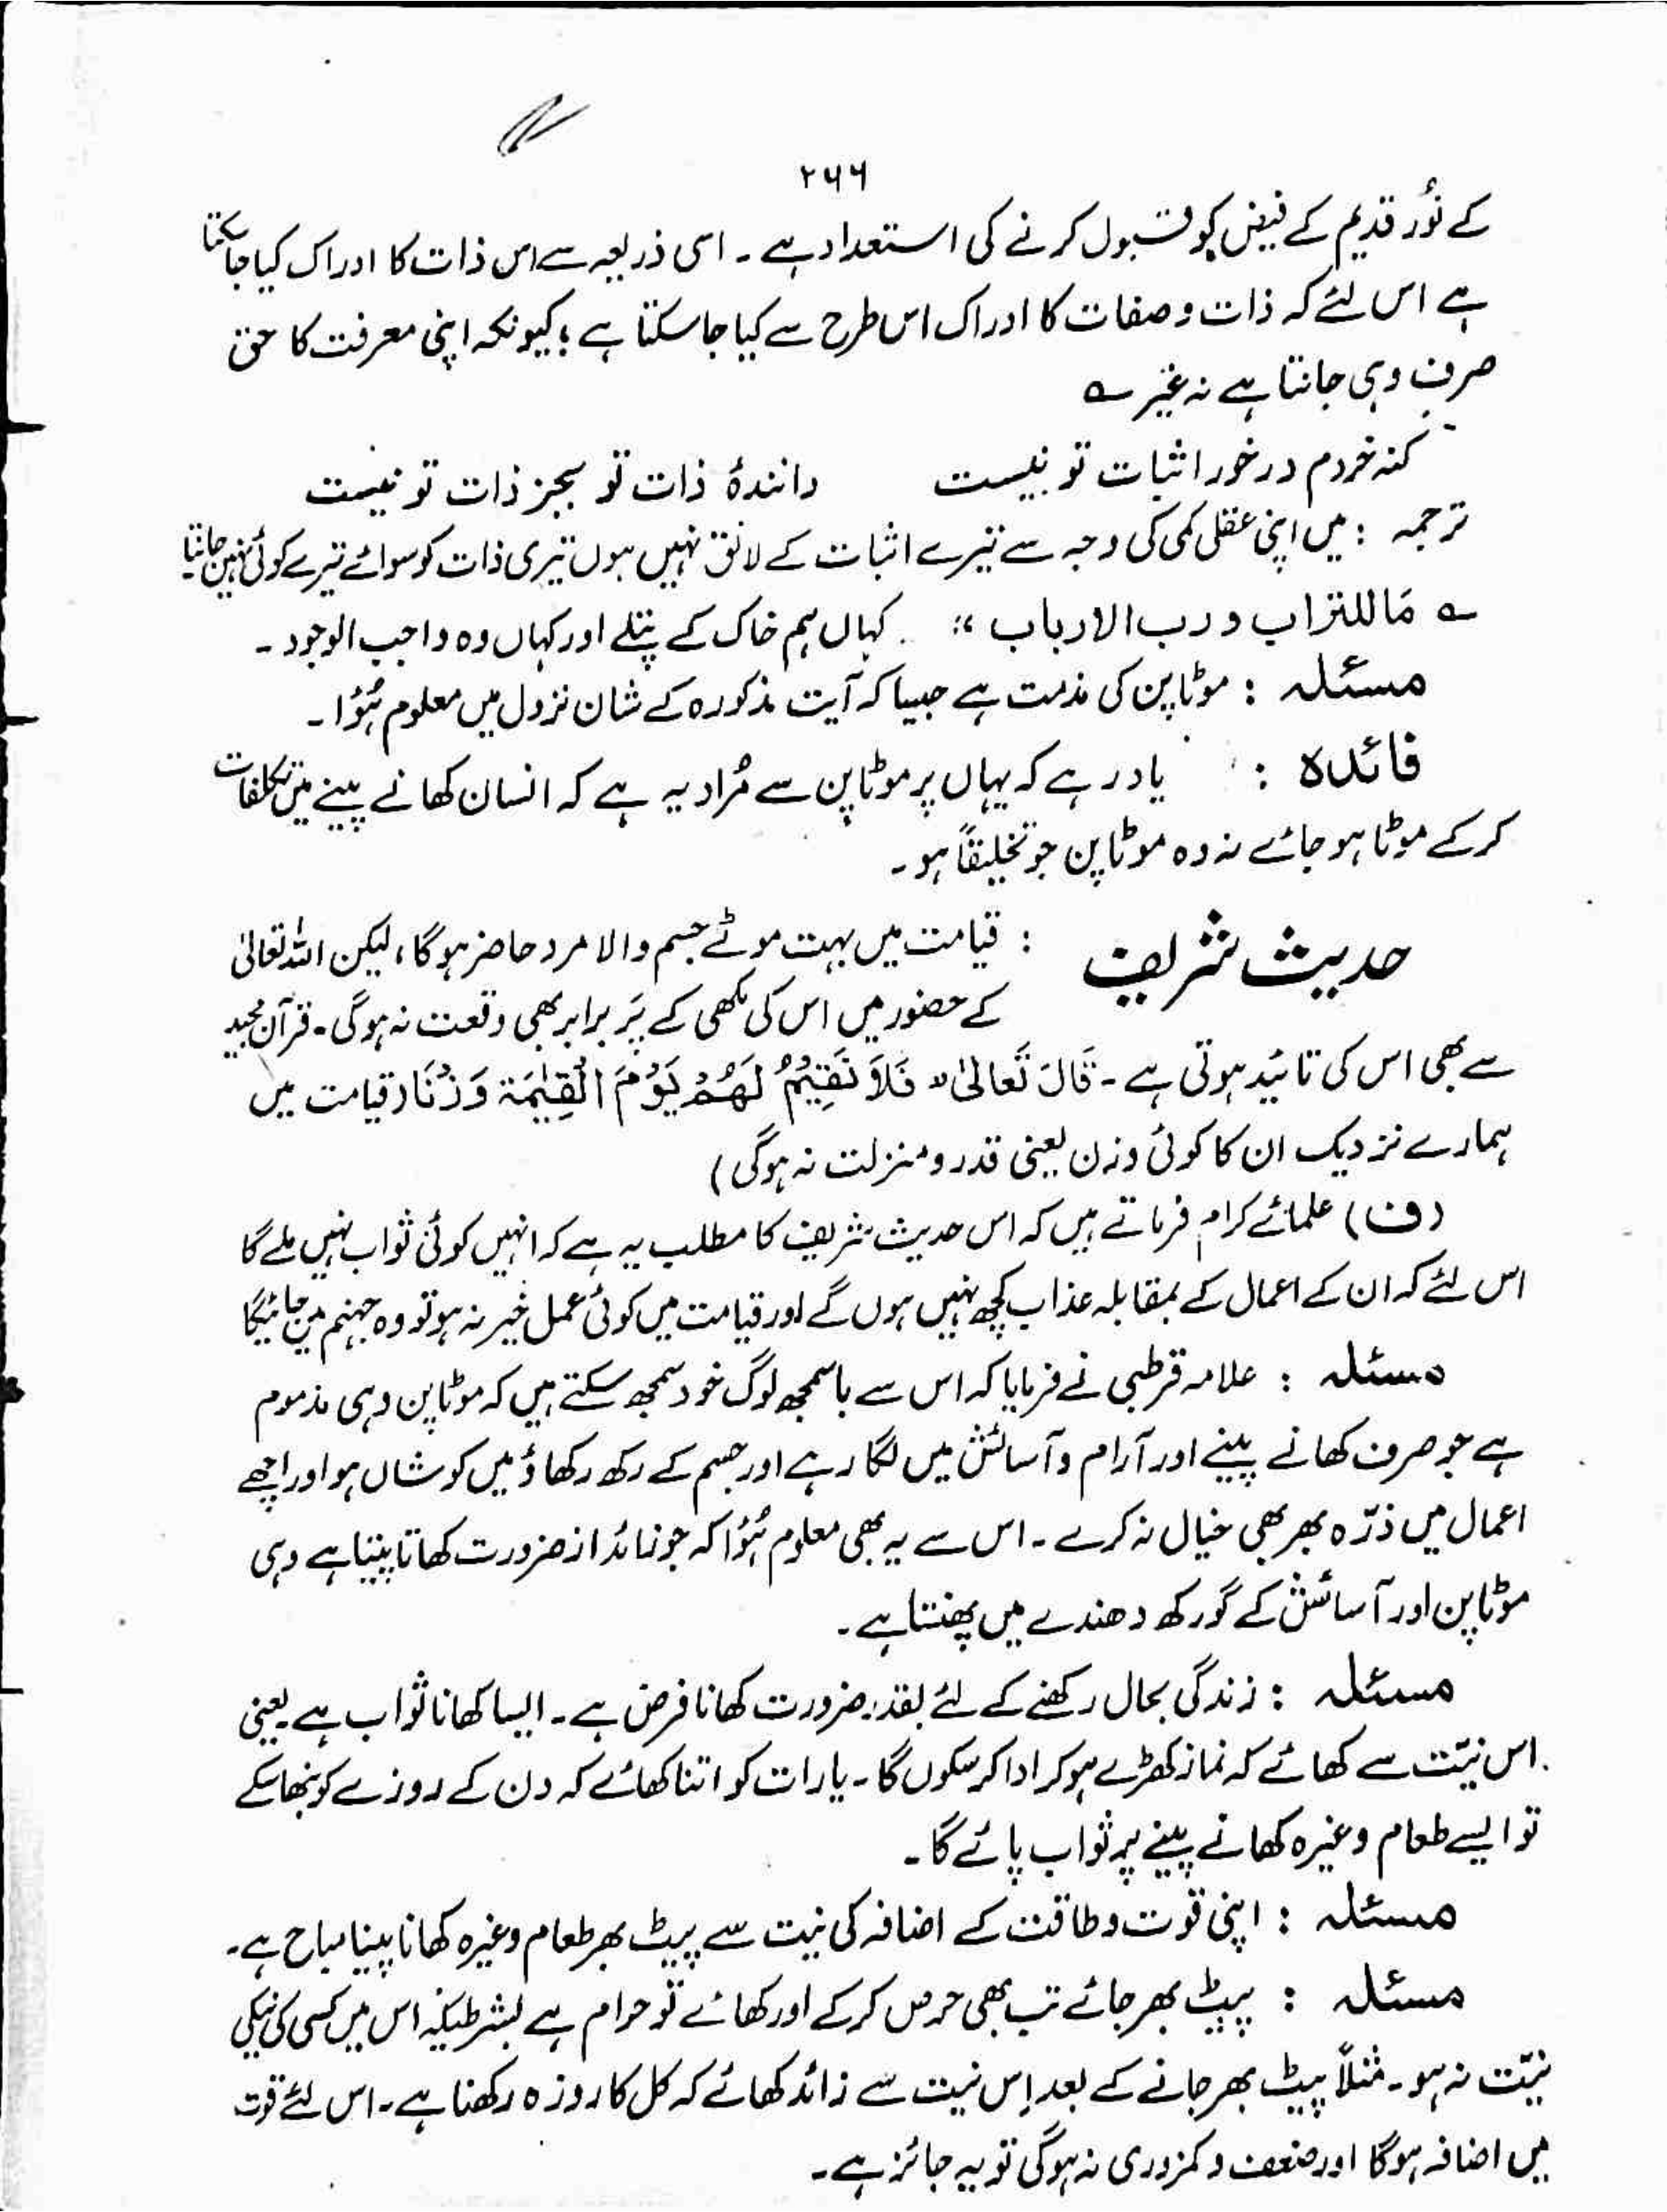 ۲۶۶
کے نُور قدیم کے فیض کو قبول کرنے کی استعداد ہے ۔ اسی ذریعہ سے اس ذات کا ادراک کیا جا سکتا
ہے اس لئے کہ ذات و صفات کا ادراک اس طرح سے کیا جا سکتا ہے ؛ کیونکہ اپنی معرفت کا حق
صرف وہی جانتا ہے نہ غیر ؎
کنہ خردم در خور اثبات تو نیست دانندۂ ذات تو بجز ذات تو نیست
ترجمہ : میں اپنی عقلی کمی کی وجہ سے تیرے اثبات کے لائق نہیں ہوں تیری ذات کو سوائے تیرے کوئی نہیں جانتا
؎ مَا للتراب و رب الارباب ؛؛ کہاں ہم خاک کے پتلے اور کہاں وہ واجب الوجود ۔
مسئلہ : موٹاپن کی مذمت ہے جیسا کہ آیت مذکورہ کے شان نزول میں معلوم ہُوا ۔
فائدہ : یاد رہے کہ یہاں پر موٹاپن سے مُراد یہ ہے کہ انسان کھانے پینے میں تکلفات
کر کے موٹا ہو جائے نہ وہ موٹاپن جو تخلیقاً ہو ۔
حدیث شریف : قیامت میں بہت موٹے جسم والا مرد حاضر ہو گا ، لیکن اللہ تعالیٰ
کے حضور میں اس کی مکھی کے پَر برابر بھی وقعت نہ ہوگی ۔ قرآن مجید
سے بھی اس کی تائید ہوتی ہے ۔ قَالَ تَعَالیٰ " فَلَا نُقِیْمُ لَھُمْ یَوْمَ الْقِیٰمَۃ وَزْنًا (قیامت میں
ہمارے نزدیک ان کا کوئی وزن یعنی قدر و منزلت نہ ہوگی )
(ف) علمائے کرام فرماتے ہیں کہ اس حدیث شریف کا مطلب یہ ہے کہ انہیں کوئی ثواب نہیں ملے گا
اس لئے کہ ان کے اعمال کے بمقابلہ عذاب کچھ نہیں ہوں گے اور قیامت میں کوئی عمل خیر نہ ہو تو وہ جہنم میں جائیگا
مسئلہ : علامہ قرطبی نے فرمایا کہ اس سے باسمجھ لوگ خود سمجھ سکتے ہیں کہ موٹاپن وہی مذموم
ہے جو صرف کھانے پینے اور آرام و آسائش میں لگا رہے اور جسم کے رکھ رکھاؤ میں کوشاں ہو اور اچھے
اعمال میں ذرّہ بھر بھی خیال نہ کرے ۔ اس سے یہ بھی معلوم ہُوا کہ جو زائد از ضرورت کھاتا پیتا ہے وہی
موٹاپن اور آسائش کے گورکھ دھندے میں پھنستا ہے ۔
مسئلہ : زندگی بحال رکھنے کے لئے بقدر ضرورت کھانا فرض ہے ۔ ایسا کھانا ثواب ہے یعنی
اس نیّت سے کھائے کہ نماز کھڑے ہو کر ادا کر سکوں گا ۔ یا رات کو اتنا کھائے کہ دن کے روزے کو نبھا سکے
تو ایسے طعام وغیرہ کھانے پینے پر ثواب پائے گا ۔
مسئلہ : اپنی قوت و طاقت کے اضافہ کی نیت سے پیٹ بھر طعام وغیرہ کھانا پینا مباح ہے ۔
مسئلہ : پیٹ بھر جائے تب بھی حرص کر کے اور کھائے تو حرام ہے بشرطیکہ اس میں کسی کی نیکی
نیّت نہ ہو ۔ مثلاً پیٹ بھر جانے کے بعد اِس نیت سے زائد کھائے کہ کل کا روزہ رکھنا ہے ۔ اس لئے قوت
میں اضافہ ہو گا اور ضعف و کمزوری نہ ہوگی تو یہ جائز ہے ۔